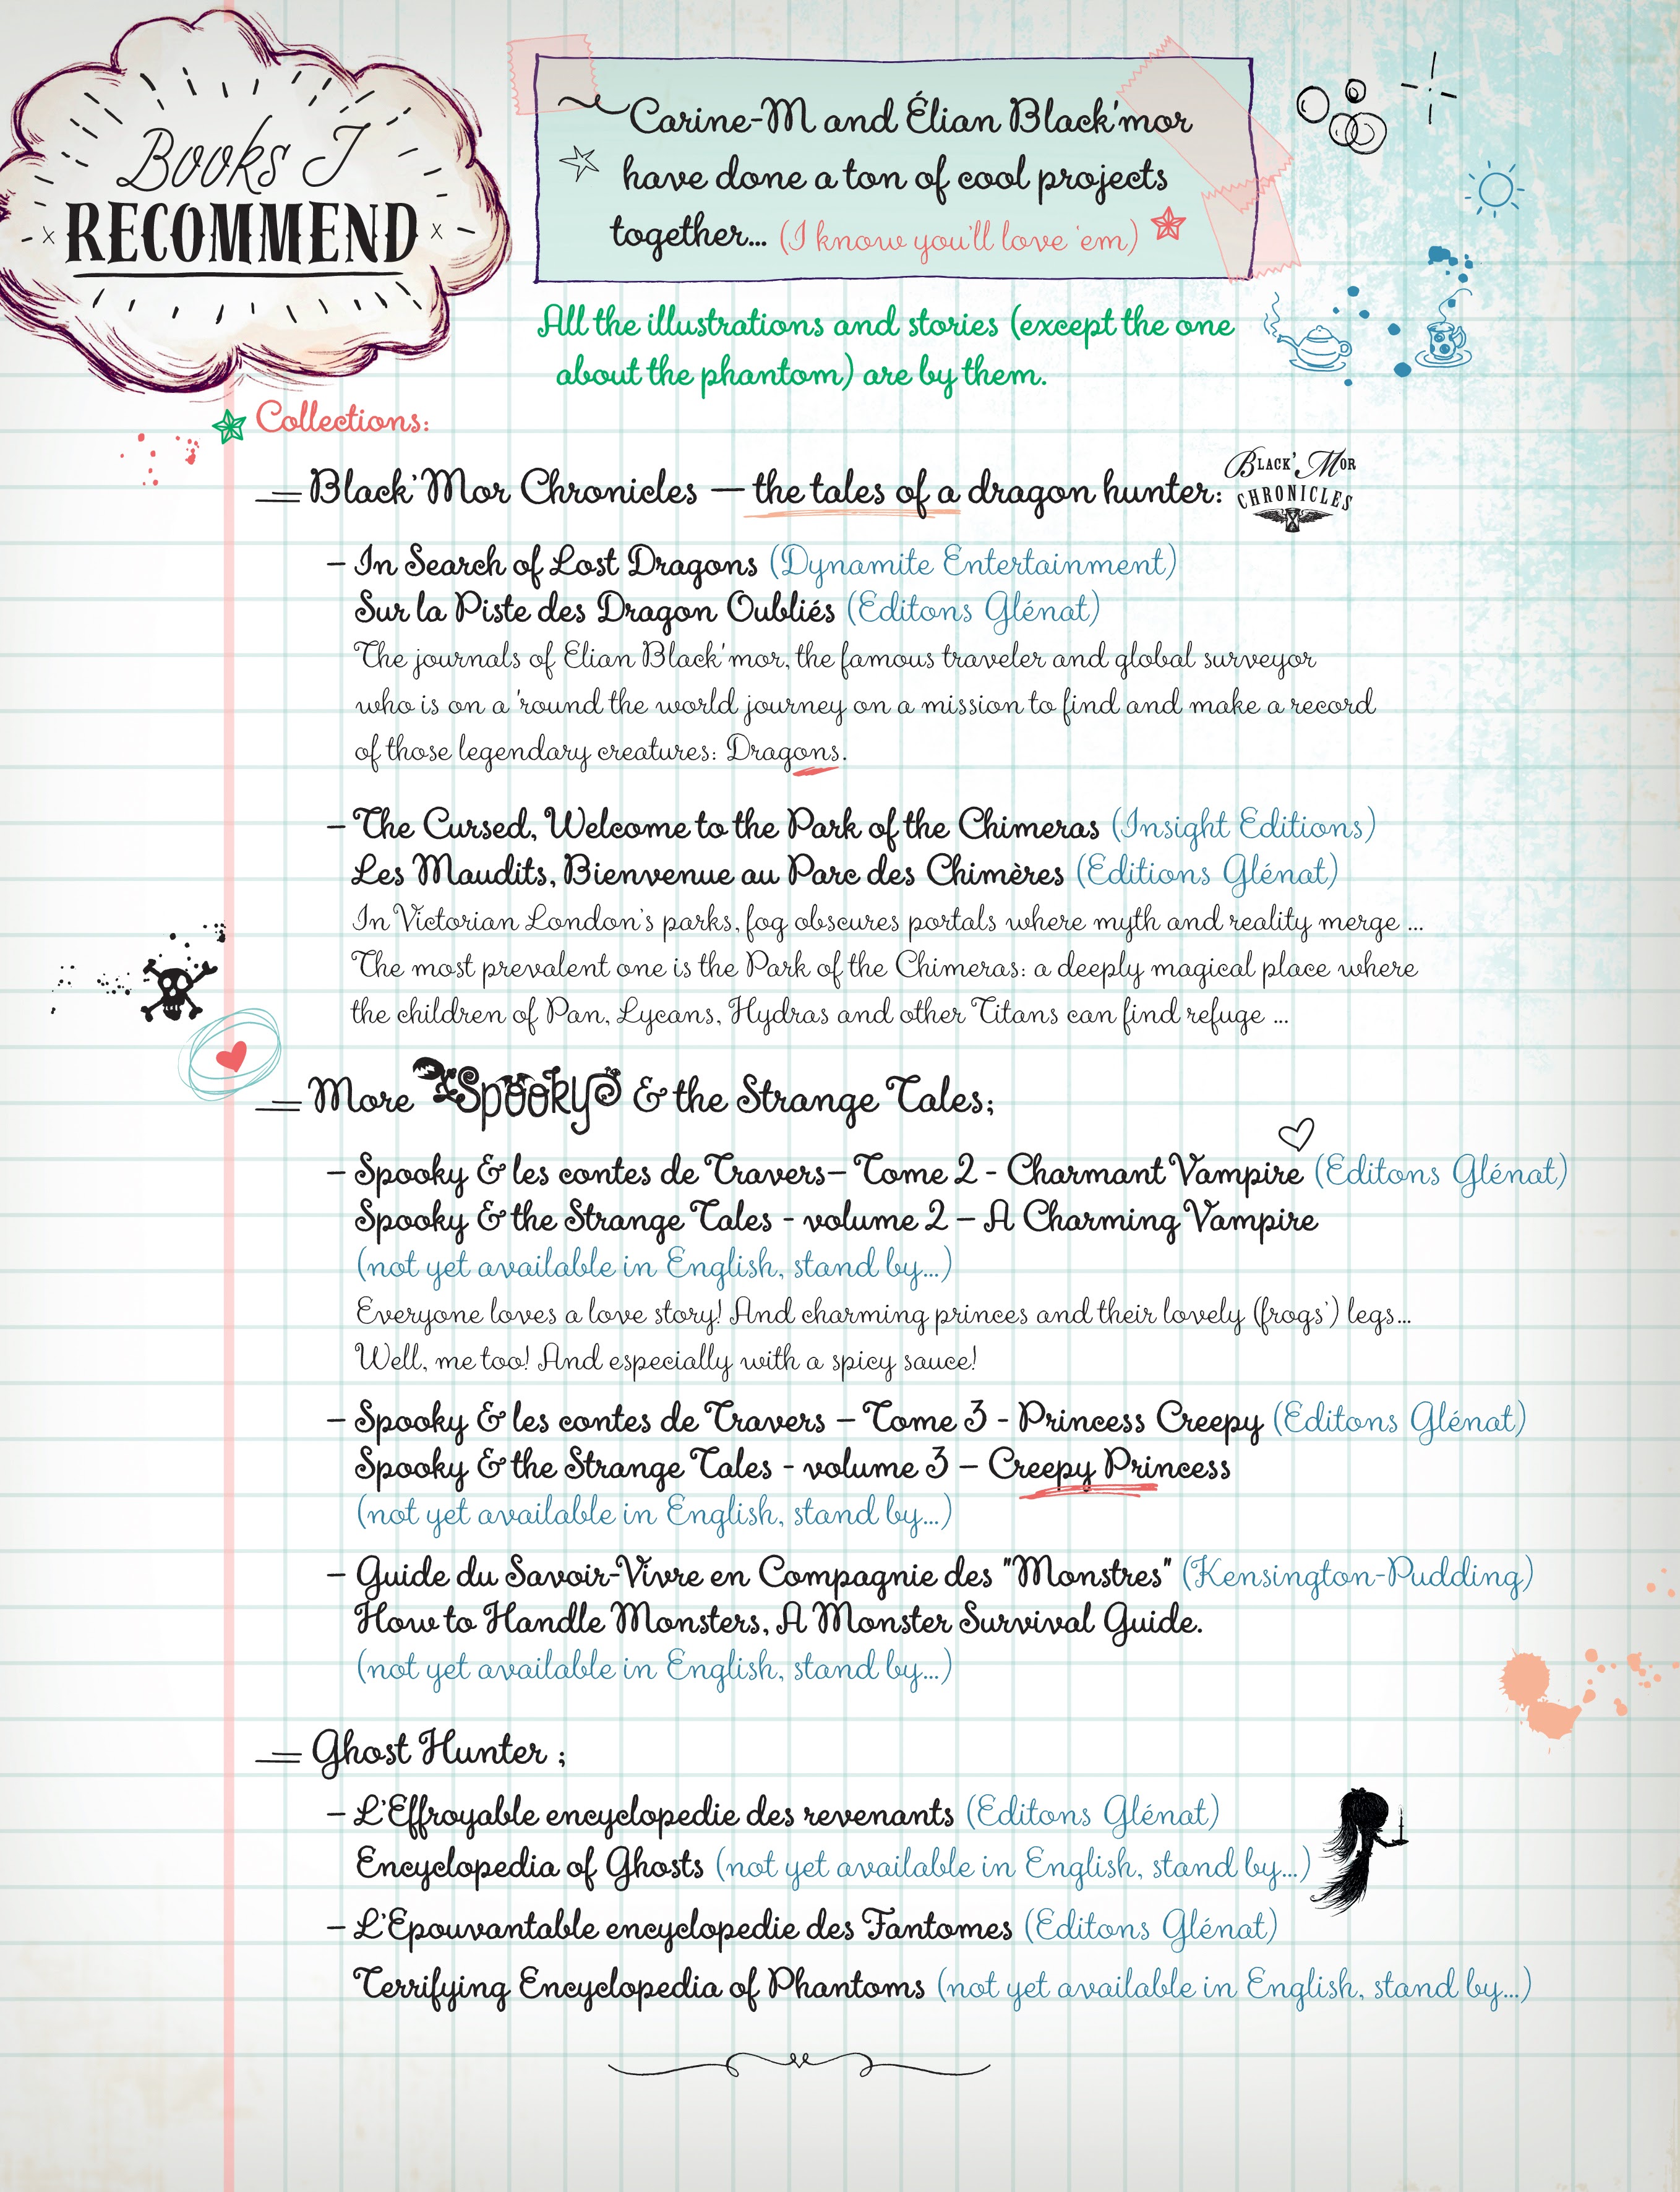 Books I
RECOMMEND
Carine-M and Élian Black'mor
have done a ton of cool projects
together... (I know you'll love 'em)
All the illustrations and stories (except the one
about the phantom) are by them.
Collections:
Black'Mor Chronicles — the tales of a dragon hunter:
BLACK' MOR
CHRONICLES
– In Search of Lost Dragons (Dynamite Entertainment)
Sur la Piste des Dragon Oubliés (Editons Glénat)
The journals of Elian Black'mor, the famous traveler and global surveyor
who is on a 'round the world journey on a mission to find and make a record
of those legendary creatures: Dragons.
– The Cursed, Welcome to the Park of the Chimeras (Insight Editions)
Les Maudits, Bienvenue au Parc des Chimères (Editions Glénat)
In Victorian London's parks, fog obscures portals where myth and reality merge ...
The most prevalent one is the Park of the Chimeras: a deeply magical place where
the children of Pan, Lycans, Hydras and other Titans can find refuge ...
More Spooky & the Strange Tales;
– Spooky & les contes de Travers– Tome 2 - Charmant Vampire (Editons Glénat)
Spooky & the Strange Tales - volume 2 – A Charming Vampire
(not yet available in English, stand by...)
Everyone loves a love story! And charming princes and their lovely (frogs') legs...
Well, me too! And especially with a spicy sauce!
– Spooky & les contes de Travers – Tome 3 - Princess Creepy (Editons Glénat)
Spooky & the Strange Tales - volume 3 – Creepy Princess
(not yet available in English, stand by...)
– Guide du Savoir-Vivre en Compagnie des "Monstres" (Kensington-Pudding)
How to Handle Monsters, A Monster Survival Guide.
(not yet available in English, stand by...)
Ghost Hunter ;
– L'Effroyable encyclopedie des revenants (Editons Glénat)
Encyclopedia of Ghosts (not yet available in English, stand by...)
– L'Epouvantable encyclopedie des Fantomes (Editons Glénat)
Terrifying Encyclopedia of Phantoms (not yet available in English, stand by...)